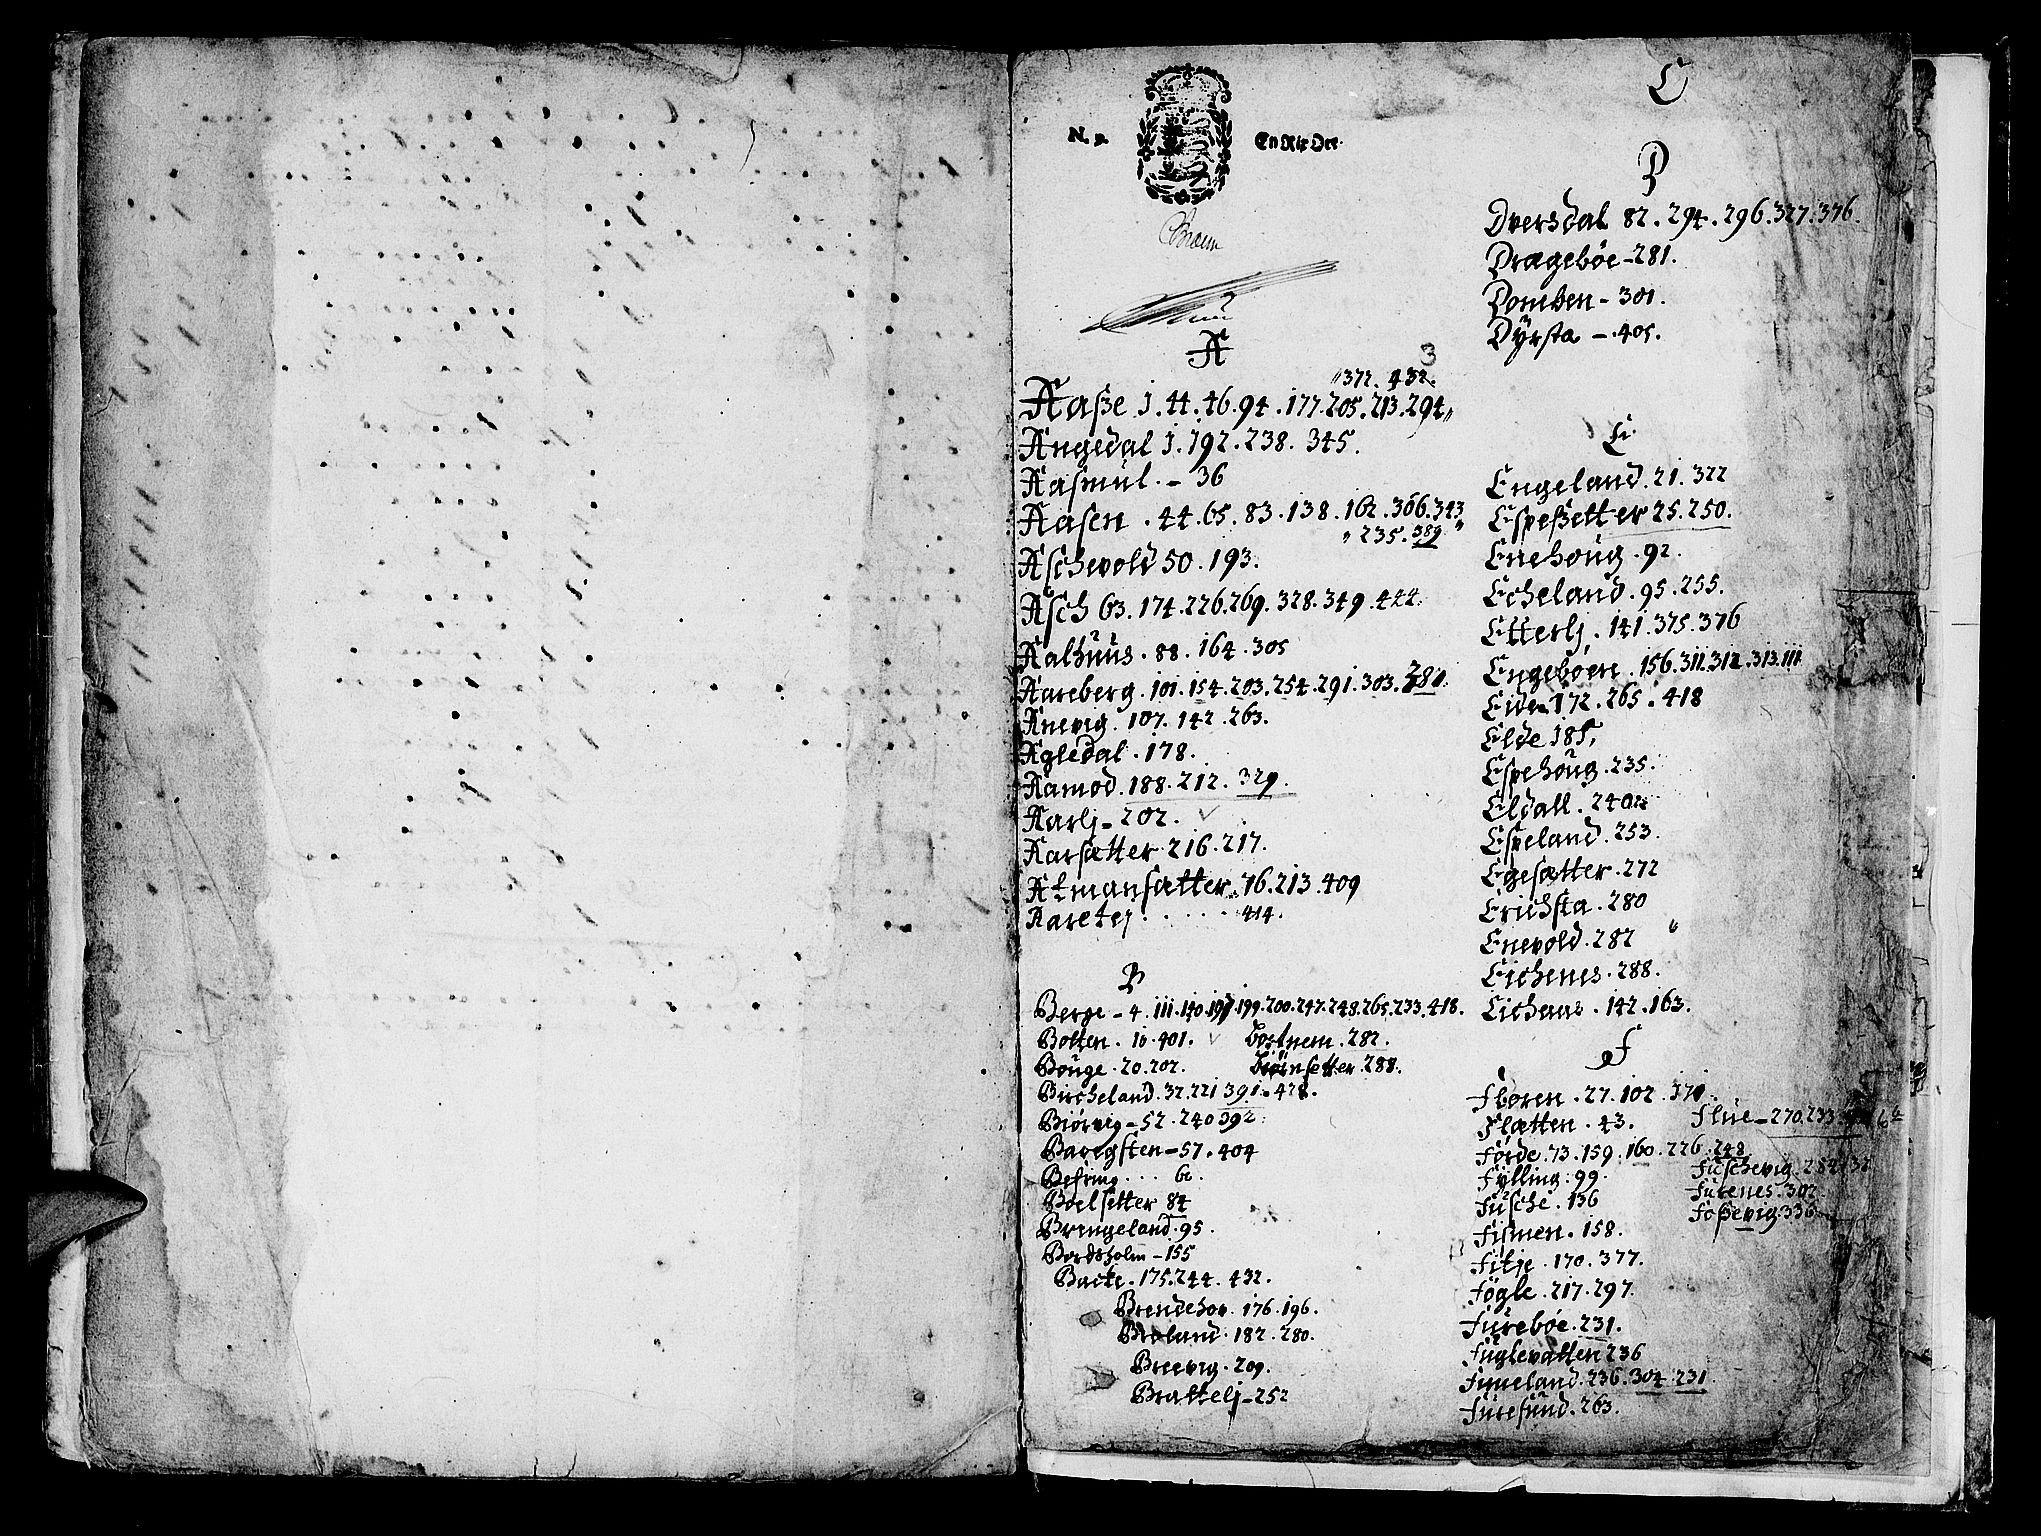 N. 2.
En Rix Ort
A
3
"372. 432.
Aaße 1. 44. 46. 94. 177. 205. 213. 294"
Angedal 1. 192. 238. 345.
Aasmul. - 36
Aasen. 44. 65. 83. 138. 162. 306. 343
" 235. 389 "
Aschevold 50. 193.
Asch 63. 174. 226. 269. 328. 349. 444.
Aalhuus. 88. 164. 305
Aareberg. 101. 154. 203. 254. 291. 303. 281.
Anevig. 107. 142. 263.
Agledal. 178.
Aamod. 188. 212. 329.
Aarlj - 202.
Aarsætter. 216. 217.
Atmansætter. 76. 213. 409
Aaretej . . . . . 414.
B
Berge - 4. 111. 140. 197. 199. 200. 247. 248. 265. 233. 418.
Botten. 10. 401.
Bostnem. 282.
Bouge. 20. 202.
Biörnsetter. 288.
Bircheland. 32. 221 391. 428.
Biørvig - 52. 240 392
Baregsten - 57. 404
Befring . . . 60.
Boelsetter 84
Bringeland. 95.
Bordsholm - 155
Bacte. 175. 244. 432.
Brendehov. 176. 196.
Broland. 182. 280.
Breevig. 209.
Brattelj - 252
C
D
Dversdal 82. 294. 296. 327. 376.
Drægebøe - 281.
Domben - 301.
Dÿrsta - 405.
E
Engeland. 21. 322
Espeßetter 25. 250.
Enehoug. 92.
Echeland. 95. 255.
Etterlj. 141. 375. 376
Engebøen. 156. 311. 312. 313. 111
Eide. 172. 265. 418
Elde 185.
Espehoug. 235.
Eldall. 240
Espeland. 253.
Egesætter. 272
Erichsta. 280
Enevold. 282 "
Eichenes. 288.
Eichaas. 142. 163.
F
Floren. 27. 102. 371.
Flætten. 43.
Flue - 270. 233.
Førde. 73. 159. 160. 226. 248
Fylling. 99.
Fuschevig. 252
Fusche. 136
Furenes. 302
Foßevig 336
Fismen. 158.
Fitje. 170. 377.
Føgle. 217. 297.
Furebøe. 231.
Fuglevatten 236
Fimeland. 236. 304. 231
Furesund. 263.